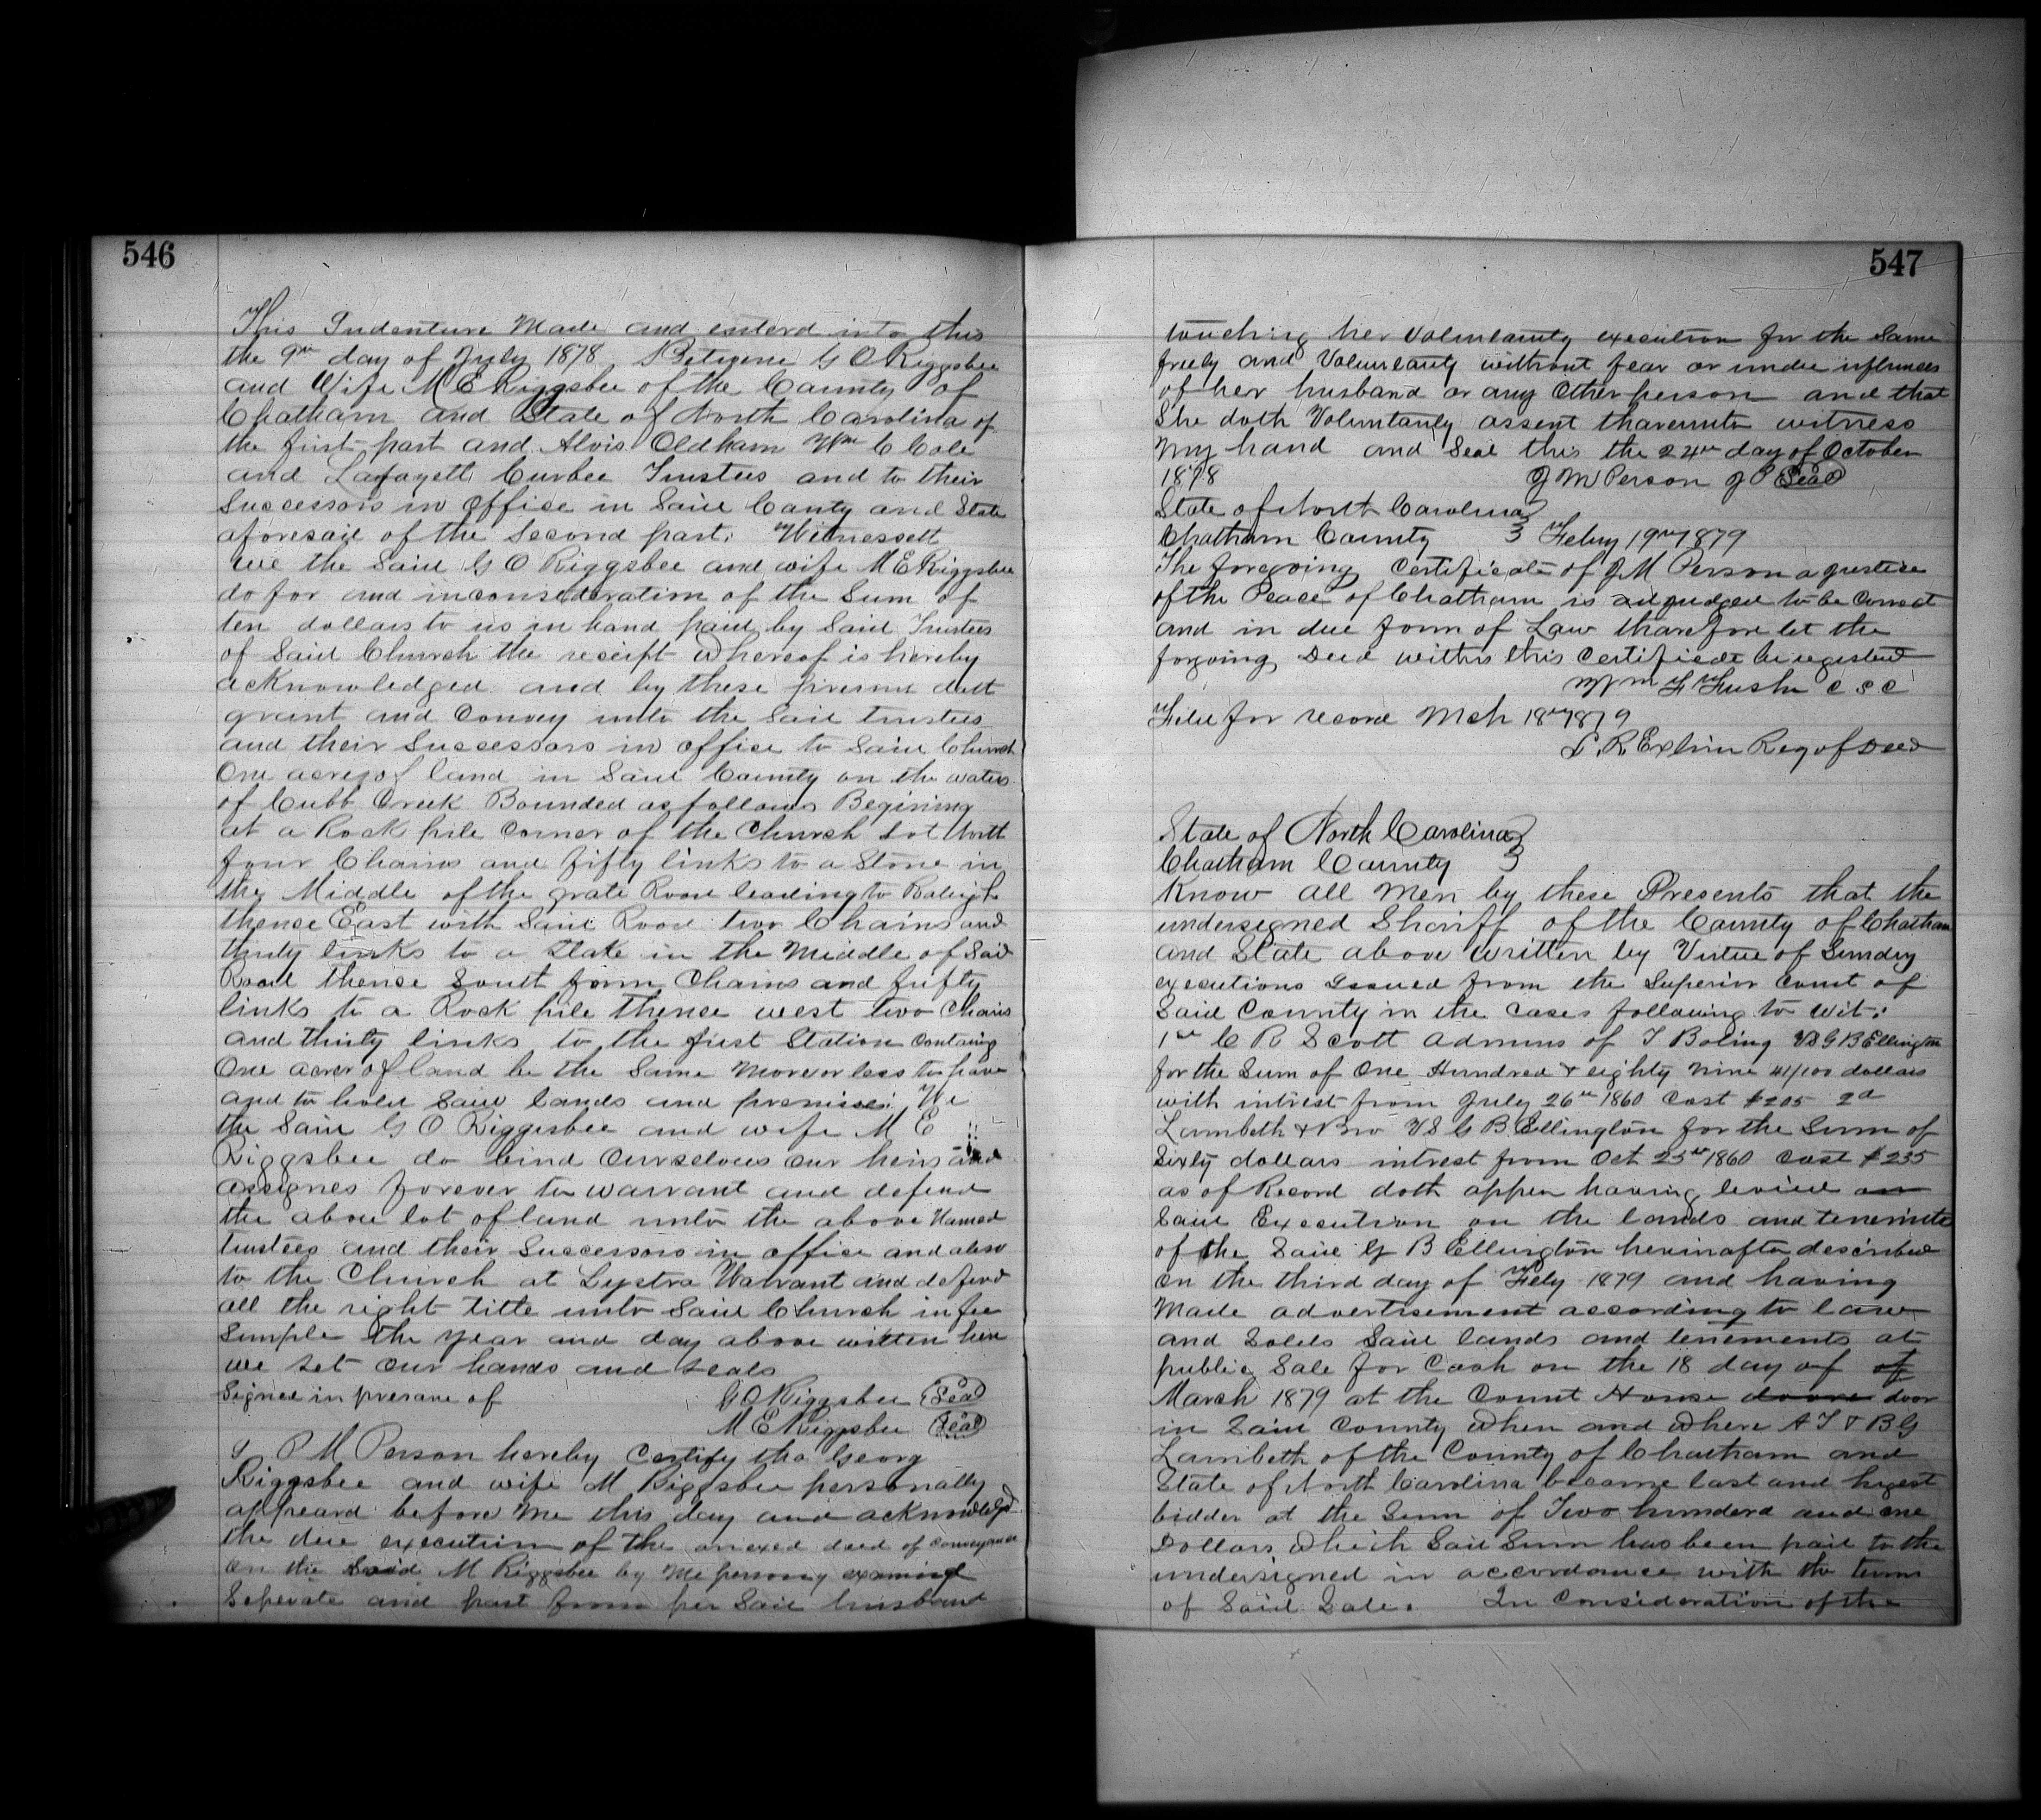 546
This Indenture Made and enterd into this
the 9th day of July 1878 Betwene G O Riggsbee
and Wife M E Riggsbee of the County of
Chatham and State of North Carolina of
the first part and Alvis Oldham Wm C Cole
and Lafayett Curbee Trustees and to their
Successors in office in Said Conty and State
aforesaid of the Second part. Witnessett
we the Said G O Riggsbee and wife M E Riggsbee
do for and inconsideration of the Sum of
ten dollars to us in hand paid by Said Trustees
of Said Church the receipt whereof is hereby
acknowledged and by these presents doth
grant and Convey unto the Said trustees
and their Successors in office to Said Church
One acre of land in Said County on the waters
of Cubb Creek Bounded as follows Begining
at a Rock pile Corner of the Church Lot North
four Chains and fifty links to a Stone in
the Middle of the grate Road leading to Raleigh
thence East with Said Road two Chains and
thirty links to a Stake in the Middle of Said
Road thence South four Chains and fifty
links to a Rock pile thence west two Chains
and thirty links to the first Station Containg
One acre of land be the Same More or less to have
and to hold Said lands and premises: We
the Said G O Riggesbee and wife M E
Riggsbee do bind Ourselves our heirs and
assignes forever to warrant and defend
the above lot of land unto the above Named
trustees and their Successors in office and also
to the Church at Lystra Warrant and defend
all the right title unto Said Church in fee
Simple the year and day above written here
we Set our hands and seals
Signed in presane of G O Riggsbee (Seal)
M E Riggsbee (Seal)
I P M Person hereby Certify tha Georg
Riggsbee and wife M Riggsbee personally
appeard before me this day and acknowledgd
the due execution of the anexed deed of conveyance
on the Said M Riggsbee by me persony examined
Seperate and part from her Said husband
547
touching her Voluntarily execution for the Same
freely and Voluntarily without fear or undue influences
of her husband or any Other person and that
She doth Voluntarily assent thareunto witness
my hand and Seal this the 24th day of October
1878 J M Person J P (Seal)
State of North Carolina
Chatham County Febuy 19th 1879
The forgoing Certificate of J M Person a justice
of the Peace of Chatham is adjudged to be Correct
and in due form of Law tharefore let the
forgoing Deed withis this Certificate be registerd
Wm F Fushe C S C
Filed for record Mch 18th 1879
R Exlin Reg of Deed
State of North Carolina
Chatham County
Know all Men by these Presents that the
undersigned Shariff of the County of Chatham
and State above written by Virtue of Sundry
executions Issued from the Superior Court of
Said County in the Cases following to wit:
1st C R Scott Admins of T Boling VS G B Ellington
for the Sum of One Hundred & eighty Nine 41/100 dollars
with intrest from July 26th 1860 Cost $205 2d
Lambeth & Bro VS G B Ellington for the Sum of
Sixty dollars intrest from Oct 25th 1860 Cost $235
as of Record doth apper having levied on
Said Execution on the lands and tenemets
of the Said G B Ellington hereinafter described
On the third day of Feby 1879 and having
Made advertisement according to law
and Solds Said lands and tenements at
public Sale for Cash on the 18 day of of
March 1879 at the Court House doore door
in Said County When and Where A T & B G
Lambeth of the County of Chatham and
State of North Carolina became last and higest
bidder at the Sum of Two hunderd and one
Dollars Which Said Sum has been paid to the
undersigned in accordance with the terms
of Said Sale. In Consideration of the